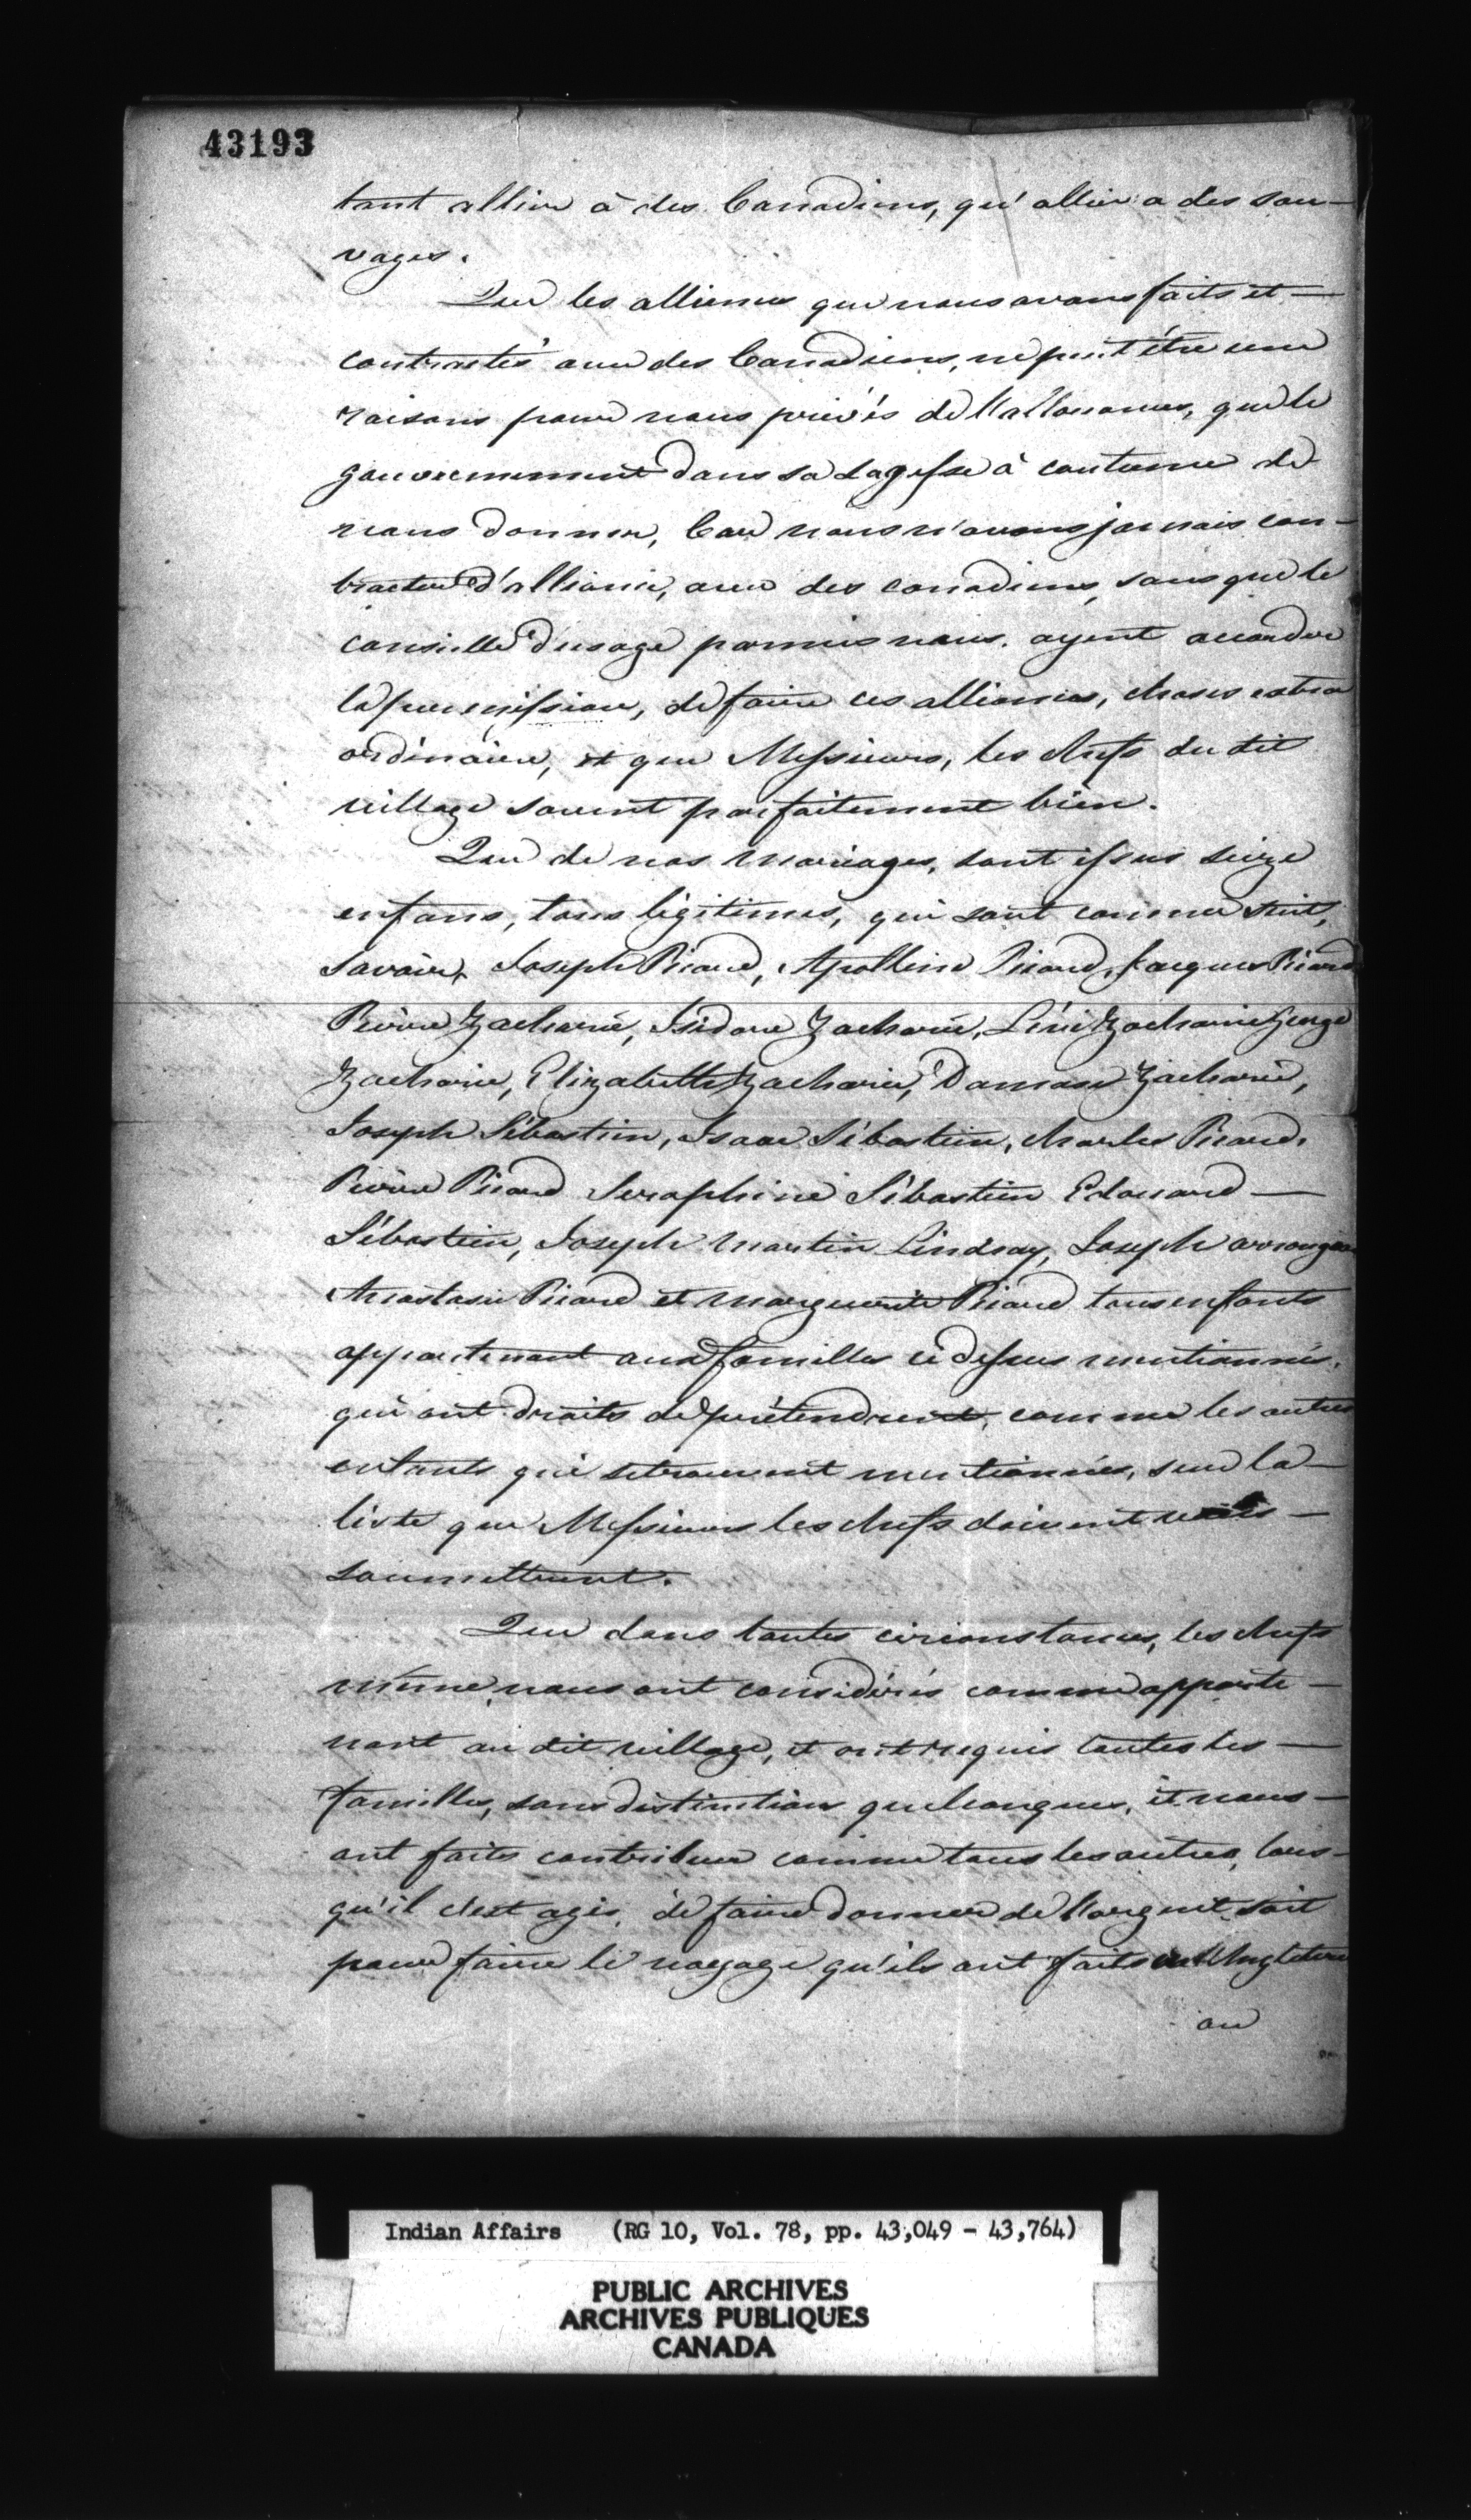 43193
tant allier à des Canadiens, qu'allier a des sau-
vages.
Que les alliences que nous avons faits et —
contractés avec des Canadiens, ne peut être une
raisons pour nous privés de l'allouances, que le
gouvernement dans sa sagesse à coutume de
nous donner, Car nous n'avons jamais con-
tracter d'alliance, avec des canadiens, sans que le
conseille d'usage parmis nous. ayent accorder
la permission, de faire ces alliances, choses extra
ordinaire, et que Messieurs, les chefs du dit
village savent parfaitement bien.
Que de nos mariages, sont issus seize
enfans, tous légitimes, qui sont comme suit,
Savoir, Joseph Picard, Apolline Picard, Jacques Picard
Pierre Zacharie, Isidore Zacharie, Zacharie George
Zacharie, Elizabeth Zacharie, Damase Zacharie,
Joseph Sébastien, Isaac Sébastien, Charles Picard,
Pierre Picard Seraphine Sébastien Edouard —
Sébastien, Joseph Martin Lindsay, Joseph
Anastasie Picard et Marguerite Picard tous enfants
appartenant aux familles ci dessus mentionnés,
qui ont droits de prétendre, comme les autres
enfants qui se trouvent mentionnées, sur la —
liste que Messieurs les chefs doivent —
soumettrent.
Que dans toutes circonstances, les chefs
même nous ont considérés comme apparte-
nant au dit village, et ont requis toutes les —
familles, sans distinction quelconques, et nous —
ont faits contribuer comme tous les autres, lors-
qu'il c'est agis, de faire donner de l'argent, soit
pour faire le voyage qu'ils ont faits en Angleterre
ou
Indian Affairs (RG 10, Vol. 78, pp. 43,049 - 43,764)
PUBLIC ARCHIVES
ARCHIVES PUBLIQUES
CANADA